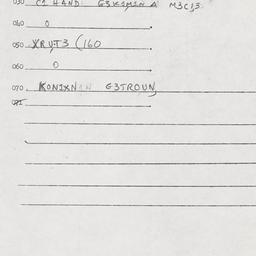 030 C1 HAND G3K1M1N A M3C13
040 0
050 XRUT3 (160
060 0
070 KONIXNIN G3TROUN
071